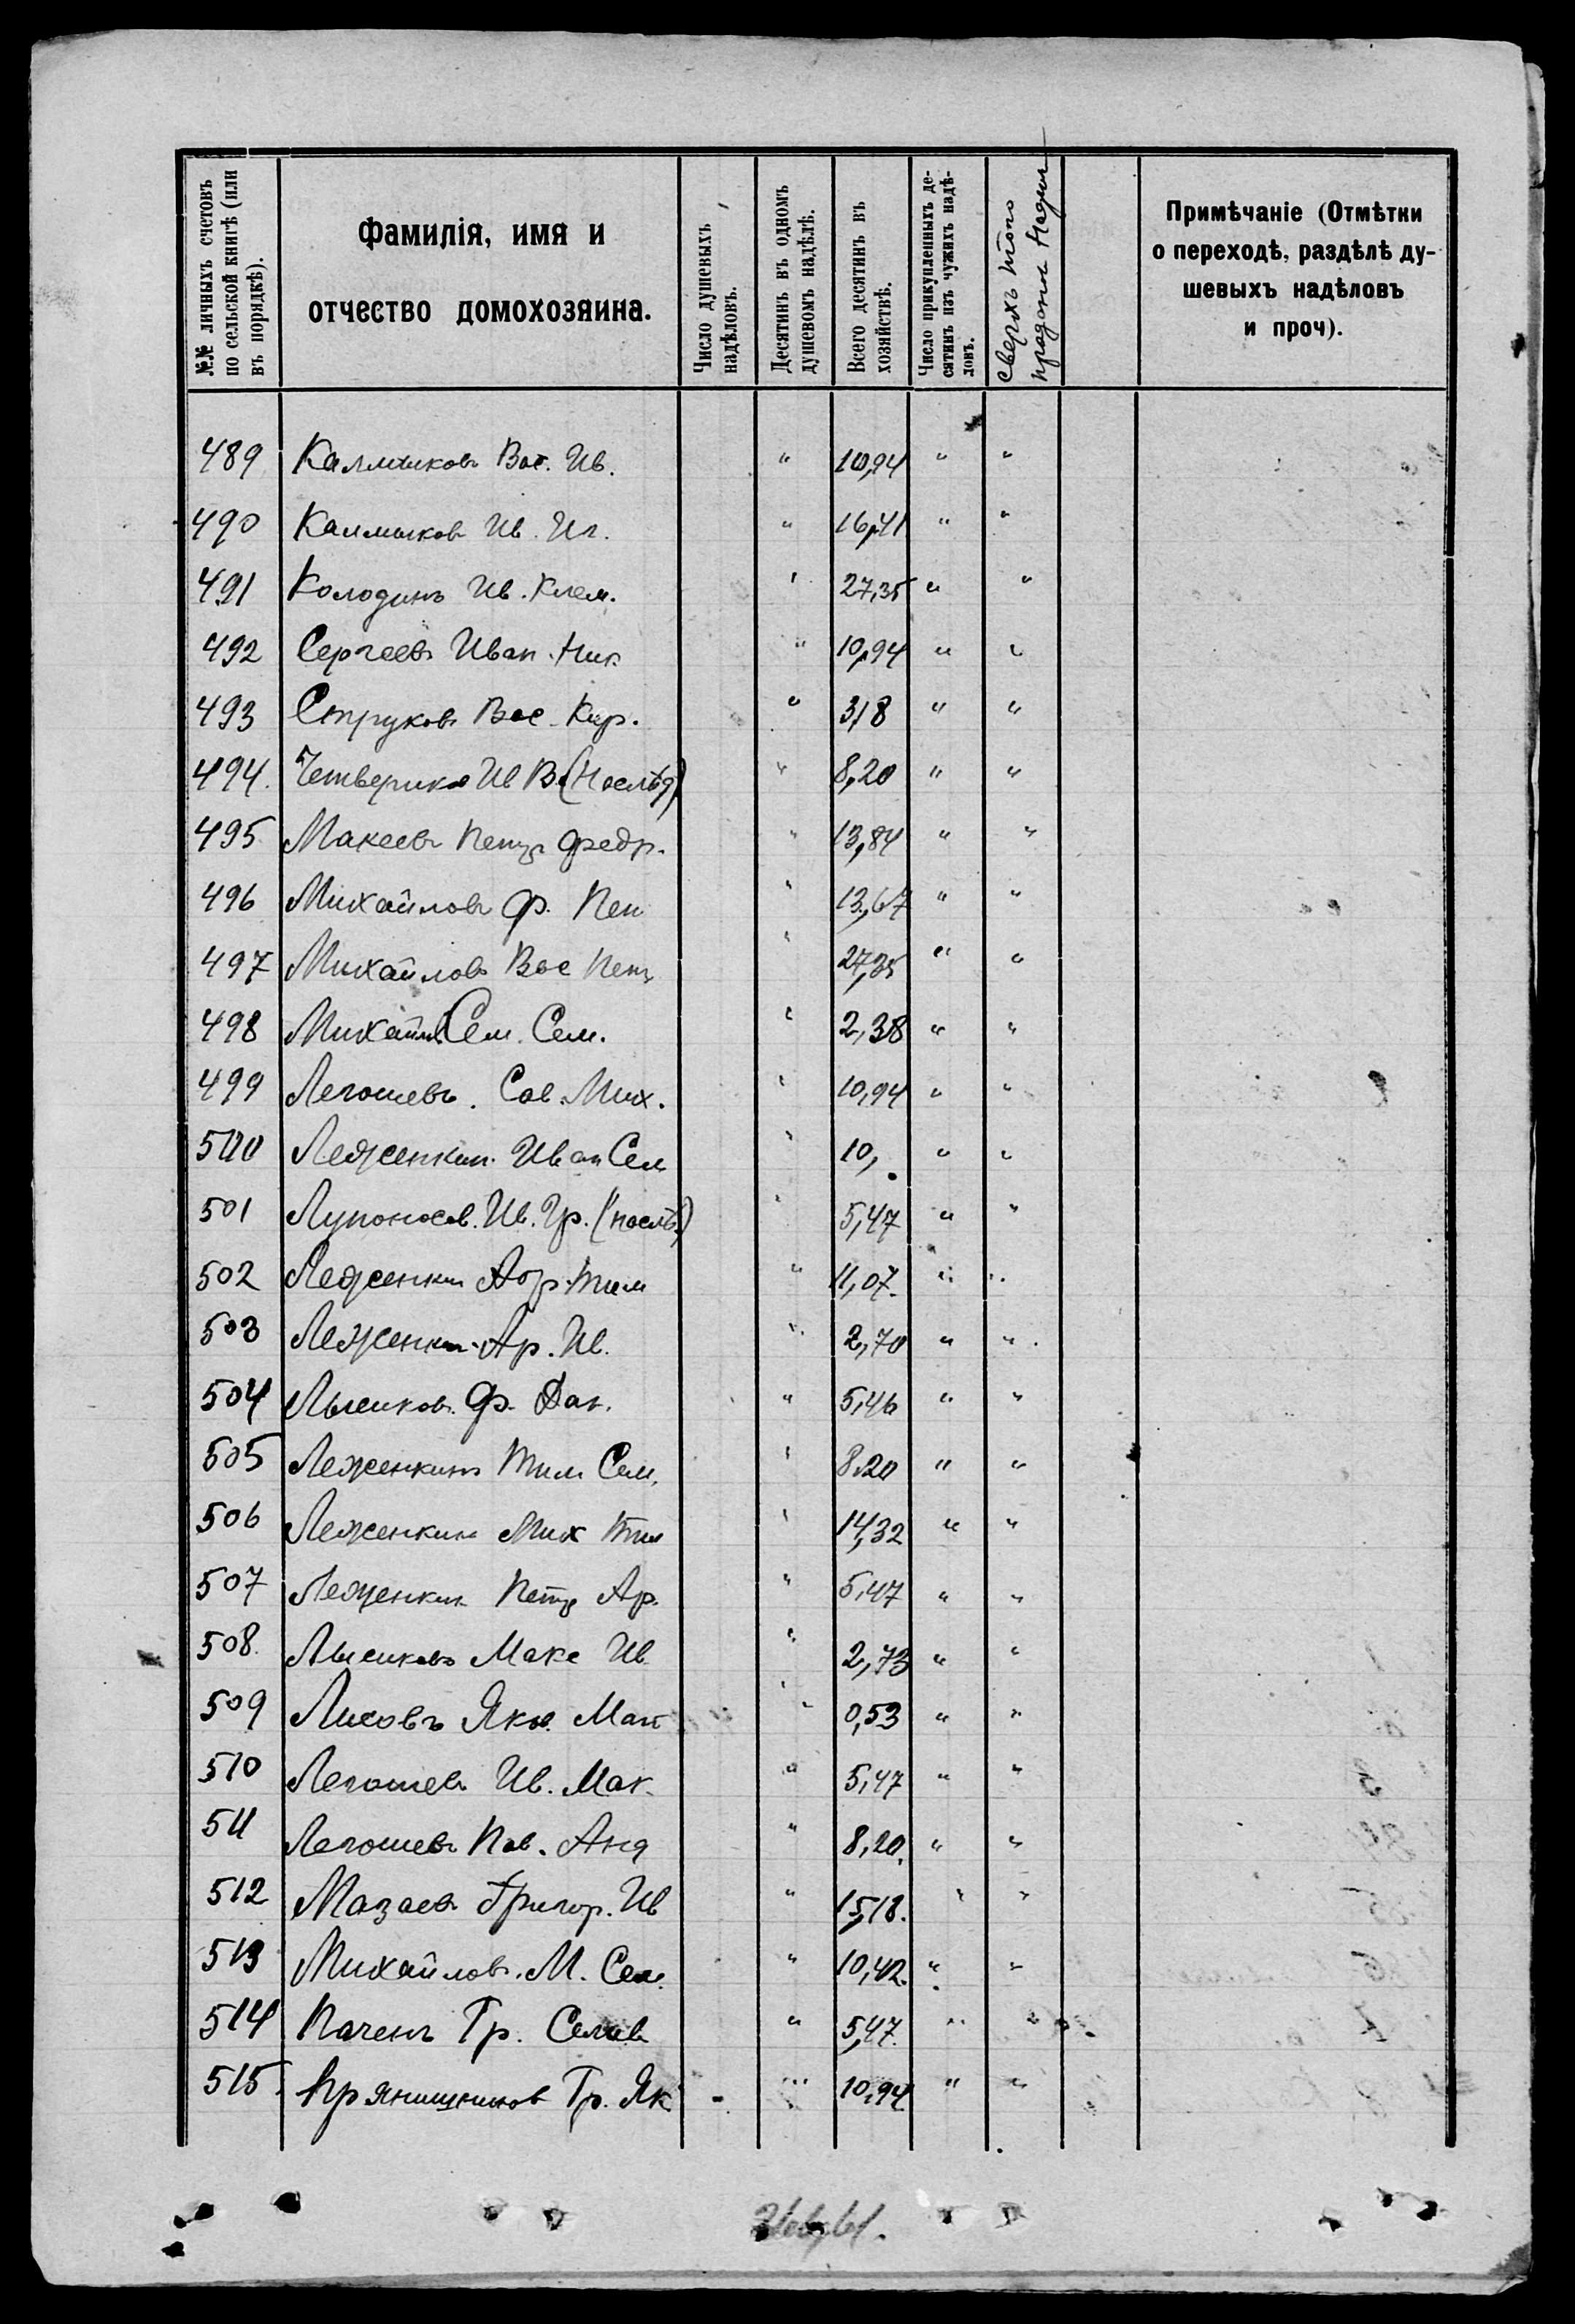 №№ личныхъ счетовъ по сельской книгѣ (или въ порядкѣ).
Фамилія, имя и отчество домохозяина.
Число душевыхъ надѣловъ.
Десятинъ въ одномъ душевомъ надѣлѣ.
Всего десятинъ въ хозяйствѣ.
Число прикупленныхъ десятинъ изъ чужихъ надѣловъ.
Сверхъ того
Примѣчаніе (Отмѣтки о переходѣ, раздѣлѣ душевыхъ надѣловъ и проч).
489 Калмыковъ Вас. Ив. " 10,94 " "
490 Калмыков Ив. Иг. " 16,41 " "
491 Колодинъ Ив. Клем. " 27,35 " "
492 Сергеевъ Иван. Ник " 10,94 " "
493 Струковъ Вас. Кир. " 3,18 " "
494. Четвериков Ив В. (Наслѣд) " 8,20 " "
495 Макеевъ Петр Федр. " 13,84 " "
496 Михайловъ Ф. Пет " 13,67 " "
497 Михайловъ Вас Петр " 27,35 " "
498 Михайл. Сем. Сем. " 2,38 " "
499 Легошевъ. Сав. Мих. " 10,94 " "
500 Леженкин Иван Сем " 10, " "
501 Лупоносов. Ив. Гр. (наслѣ.) " 5,47 " "
502 Леженкин Тим " 11,07. " "
503 Леженкин Ар. Ив. " 2,70 " "
504 Лысиков. Ф. " 5,46 " "
505 Леженкинъ Тим Сем. " 8,20 " "
506 Леженкинъ Мих Тим " 14,32 " "
507 Леженкин Петр Ар. " 5,47 " "
508. Лысиковъ Макс Ив " 2,73 " "
509 Лисовъ Яков. Мат " 0,53 " "
510 Легошев Ив. Мак. " 5,47 " "
511 Легошевъ Пав. Анд " 8,20. " "
512 Мазаевъ Григор. Ив " 15,18. " "
513 Михайловъ. М. Сем. " 10,42. " "
514 Гр. " 5,47. " "
515. Прянишников Гр. Як " 10,94 " "